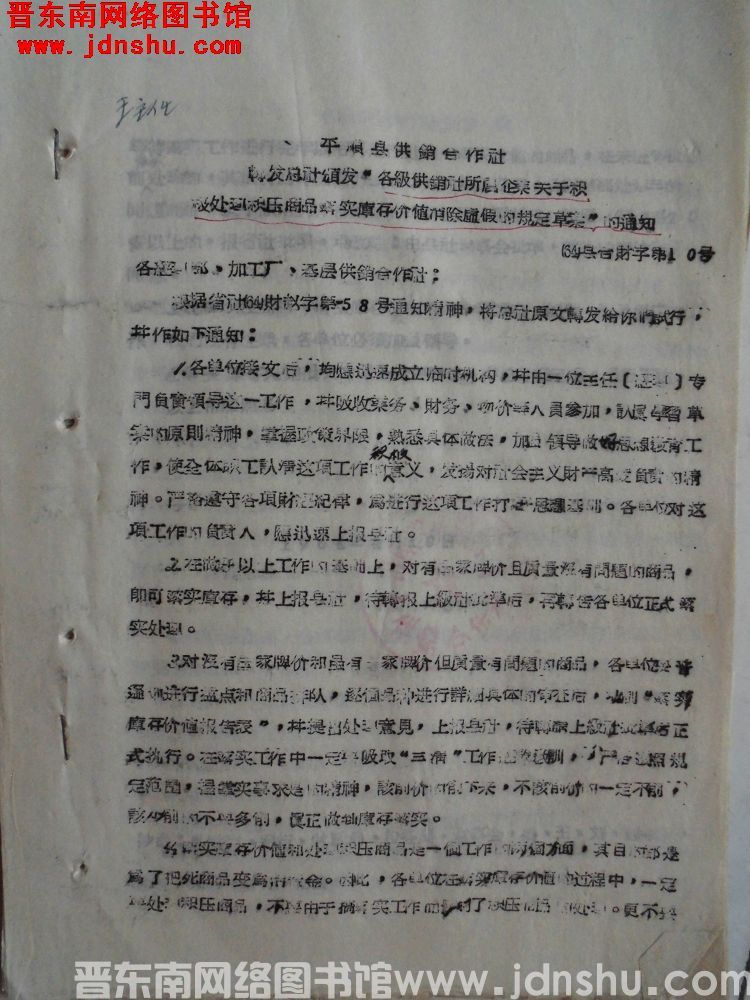 晋东南网络图书馆
www.jdnshu.com
王主任
平順县供銷合作社
轉发总社頒发"各級供銷社所屬企業关于积
极处理积压商品落实庫存价值消除虛假的規定草案"的通知
(64)县合財字第10号
各經理部、加工厂、基层供銷合作社：
根据省社(64)財赵字第58号通知精神，将总社原文轉发給你們試行，
并作如下通知：
1.各单位接文后，均应迅速成立临时机构，并由一位主任(經理)专
門负責領导这一工作，并吸收業务、財务、物价等人員参加，認眞学習草
案的原則精神，掌握政策界限，熟悉具体做法，加強領导做好思想教育工
作，使全体职工認清这項工作的积极意义，发揚对社会主义財产高度負責的精
神。严格遵守各項財經紀律，爲进行这項工作打好思想基础。各单位对这
項工作的負責人，应迅速上报县社。
2.在做好以上工作的基础上，对有国家牌价且質量沒有問題的商品，
即可落实庫存，并上报县社，待轉报上級社批准后，再轉告各单位正式落
实处理。
3.对沒有国家牌价和虽有国家牌价但質量有問題的商品，各单位要普
遍进行盘点和商品排队，逐值品种进行詳細具体的 后，
庫存价值报告表"，并提出处理意見，上报县社，待轉报上級社批准后正
式执行。在落实工作中一定要吸取"三清"工作的 訓，严 照規
定范围，本着实事求是的精神，該削价的削下来，不該削价的一定不削，
該少削的不要多削，眞正做到庫存落实。
4.落实庫存价值和处理积压商品是一個工作的两個方面，其目的都是
爲了把死商品变爲活资金。因此，各单位在落实庫存价值的过程中，一定
要处理积压商品，不要由于搞落实工作而影响了积压商品的处理。更不要
晋东南网络图书馆www.jdnshu.com